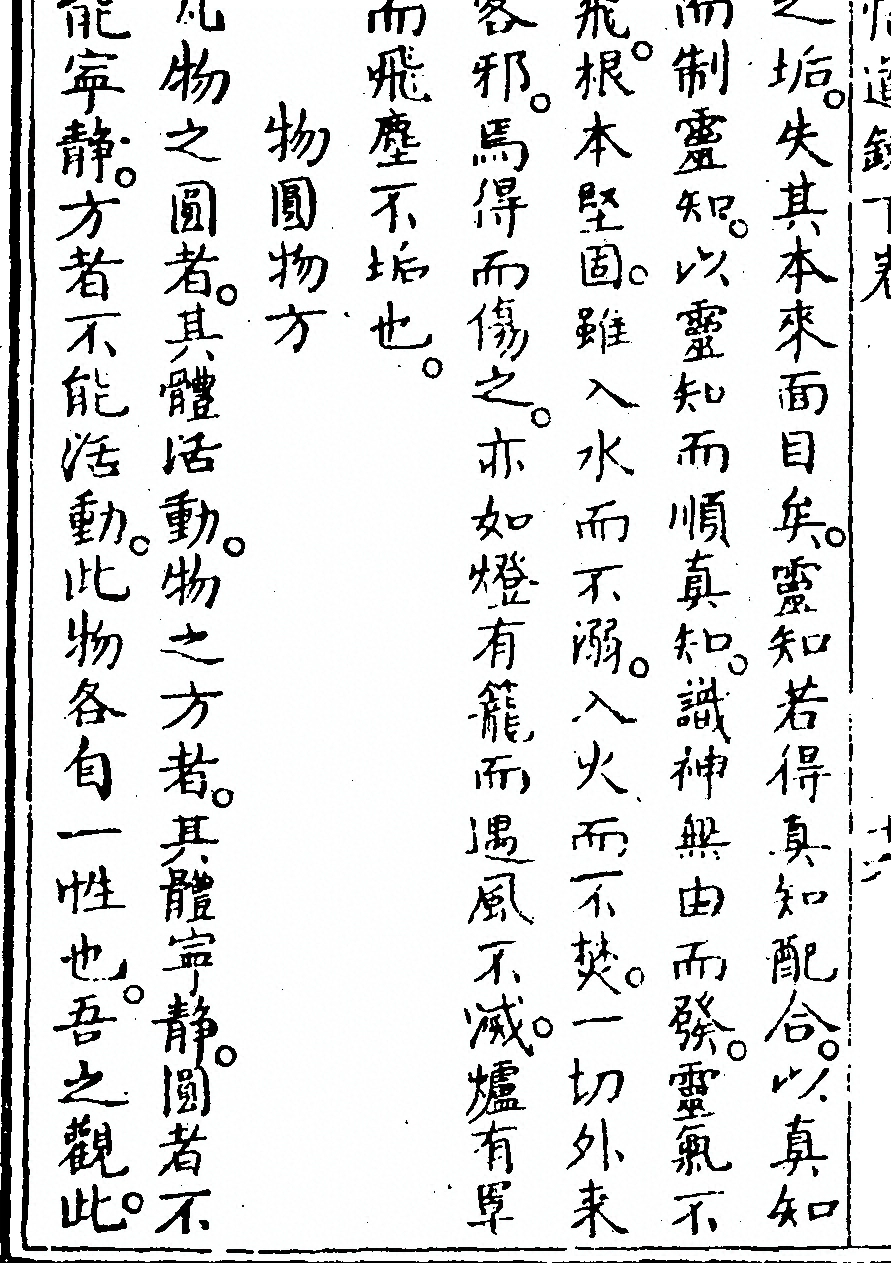 悟道錄下卷
十二
之垢。失其本來面目矣。靈知若得真知配合。以真知
而制靈知。以靈知而順真知。識神無由而發。靈氣不
飛。根本堅固。雖入水而不溺。入火而不焚。一切外来
客邪。焉得而傷之。亦如燈有籠而遇風不滅。爐有罩
而飛塵不垢也。
物圓物方
凡物之圓者。其體活動。物之方者。其體寧静。圓者不
能寧静。方者不能活動。此物各自一性也。吾之觀此。